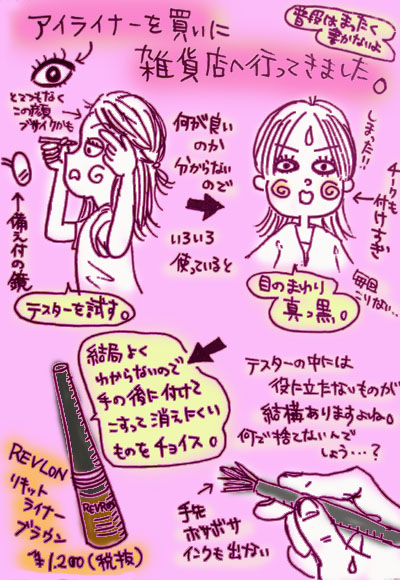 アイライナーを買いに
雑貨店へ行ってきました。
普段はまったく
書かないよ
とてつもなく
この顔
ブサイクかも
↑備え付の鏡
テスターを試す。
何が良い
のか
分からない
ので
いろいろ
使っていると
しまった!!
チークも
付けすぎ
毎回
こりない…
目のまわり
真っ黒。
結局よく
わからないので
手の後に付けて
こすって消えにくい
ものをチョイス。
REVLON
リキット
ライナー
ブラウン
¥1.200(税抜)
REVRON
テスターの中には
役に立たないものが
結構ありますよね。
何で捨てないんで
しょう…?
毛先
ボサボサ
インクも出ない